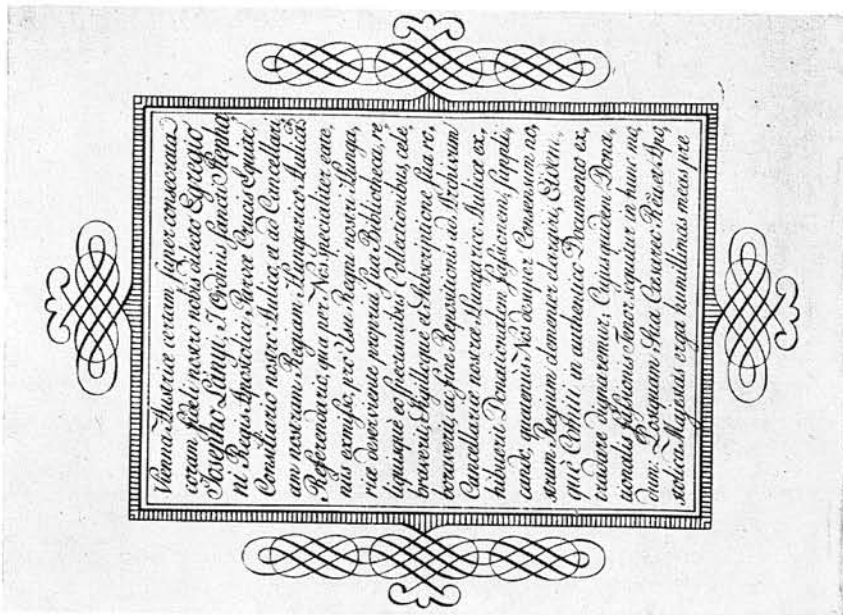 Viennæ Austriæ coram, super consecrata
coram fideli nostro nobis dilecto Egregio
Josepho Lányi, I. Ordinis Sancti Stepha,
ni Regis Apostolici Parvæ Crucis Equite,
Consiliario nostro Aulico, et ad Cancellari,
am nostram Regiam Hungarico-Aulicam
Referendario, qui per Nos specialiter eate,
nus exmissus, pro Usu Regni nostri Hunga,
riæ deserviente propria sua Bibliotheca, re,
liquisque eo spectantibus Collectionibus, cele,
braverit, Sigilloque et Subscriptione sua ro,
boraverit, ac fine Repositionis ad Archivum
Cancellariæ nostræ Hungarico Aulicæ ex,
hibuerit Donationalem Fassionem, suppli,
cando, quatenus Nos desuper Consensum no,
strum Regium clementer elargiri, Eidem,
que Comiti in authentico Documento ex,
tradare dignaremur; Cujusquidem Dona,
tionalis Fassionis Tenor sequitur in hunc mo,
dum: Postquam Sua Cæsareo-Regia et Apo,
stolica Majestas erga humillimas meas pre